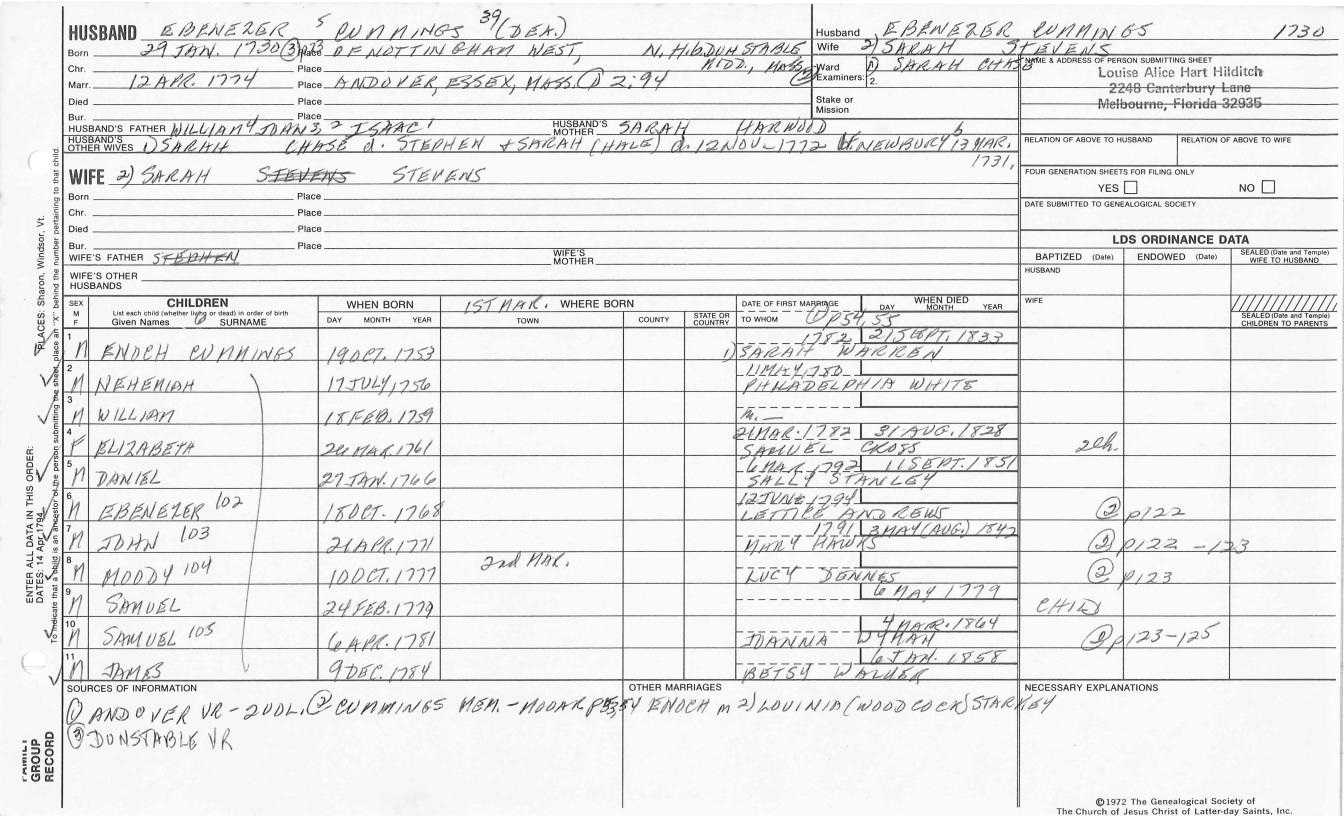 HUSBAND EBENEZER 5 CUMMINGS 39 (DEA.)
Born 29 JAN. 1730 ③ Place OF NOTTINGHAM WEST, N.H. & DUNSTABLE
Chr. Place MIDD., MASS.
Marr. 12 APR. 1774 Place ANDOVER, ESSEX, MASS. ① 2:94
Died Place
Bur. Place
HUSBAND'S FATHER WILLIAM 4 JOHN 3, 2 ISAAC 1 HUSBAND'S MOTHER SARAH HARWOOD
HUSBAND'S OTHER WIVES 1) SARAH CHASE d. STEPHEN & SARAH (HALE) d. 12 NOV - 1772 b NEWBURY 13 MAR. 1731,
WIFE 2) SARAH STEVENS STEVENS
Born Place
Chr. Place
Died Place
Bur. Place
WIFE'S FATHER STEPHEN WIFE'S MOTHER
WIFE'S OTHER HUSBANDS
Husband EBENEZER CUMMINGS 1730
Wife 2) SARAH STEVENS
Ward 1) SARAH CHASE
Examiners: 2.
Stake or Mission
NAME & ADDRESS OF PERSON SUBMITTING SHEET
Louise Alice Hart Hilditch
2248 Canterbury Lane
Melbourne, Florida 32935
RELATION OF ABOVE TO HUSBAND RELATION OF ABOVE TO WIFE
FOUR GENERATION SHEETS FOR FILING ONLY
YES NO
DATE SUBMITTED TO GENEALOGICAL SOCIETY
LDS ORDINANCE DATA
BAPTIZED (Date) ENDOWED (Date) SEALED (Date and Temple) WIFE TO HUSBAND
HUSBAND
WIFE
SEALED (Date and Temple) CHILDREN TO PARENTS
SEX M F CHILDREN WHEN BORN 1ST MAR. WHERE BORN DATE OF FIRST MARRIAGE WHEN DIED
List each child (whether living or dead) in order of birth
Given Names 6 SURNAME DAY MONTH YEAR TOWN COUNTY STATE OR COUNTRY TO WHOM DAY MONTH YEAR
① p54, 55
1 M ENOCH CUMMINGS 19 OCT. 1753 1782 21 SEPT. 1833
1) SARAH WARREN
2 M NEHEMIAH 17 JULY, 1756 11 MAY, 1780
PHILADELPHIA WHITE
3 M WILLIAM 18 FEB. 1759 m. —
4 F ELIZABETH 26 MAR. 1761 21 MAR. 1782 31 AUG. 1828
SAMUEL CROSS 2ch.
5 M DANIEL 27 JAN. 1766 6 MAR. 1792 11 SEPT. 1851
SALLY STANLEY
6 M EBENEZER 102 18 OCT. 1768 12 JUNE 1794
LETTICE ANDREWS ② p122
7 M JOHN 103 21 APR. 1771 1791 3 MAY (AUG.) 1842
MARY HAWKS ② p122 - 123
8 M MOODY 104 10 OCT. 1777 2nd MAR.
LUCY DENNES ② p123
9 M SAMUEL 24 FEB. 1779 6 MAY 1779
CHILD
10 M SAMUEL 105 6 APR. 1781 4 MAR. 1864
JOANNA WYMAN ② p123-125
11 M JAMES 9 DEC. 1784 6 JAN. 1858
BETSY WALKER
SOURCES OF INFORMATION OTHER MARRIAGES NECESSARY EXPLANATIONS
① ANDOVER VR - 2 VOL. ② CUMMINGS MEM. - MOOAR p53,54 ENOCH m 2) LOUINIA (WOODCOCK) STARKEY
③ DUNSTABLE VR
©1972 The Genealogical Society of
The Church of Jesus Christ of Latter-day Saints, Inc.
FAMILY GROUP RECORD
ENTER ALL DATA IN THIS ORDER:
DATES: 14 Apr 1794
PLACES: Sharon, Windsor, Vt.
To indicate that a child is an ancestor of the person submitting the sheet, place an "X" behind the number pertaining to that child.